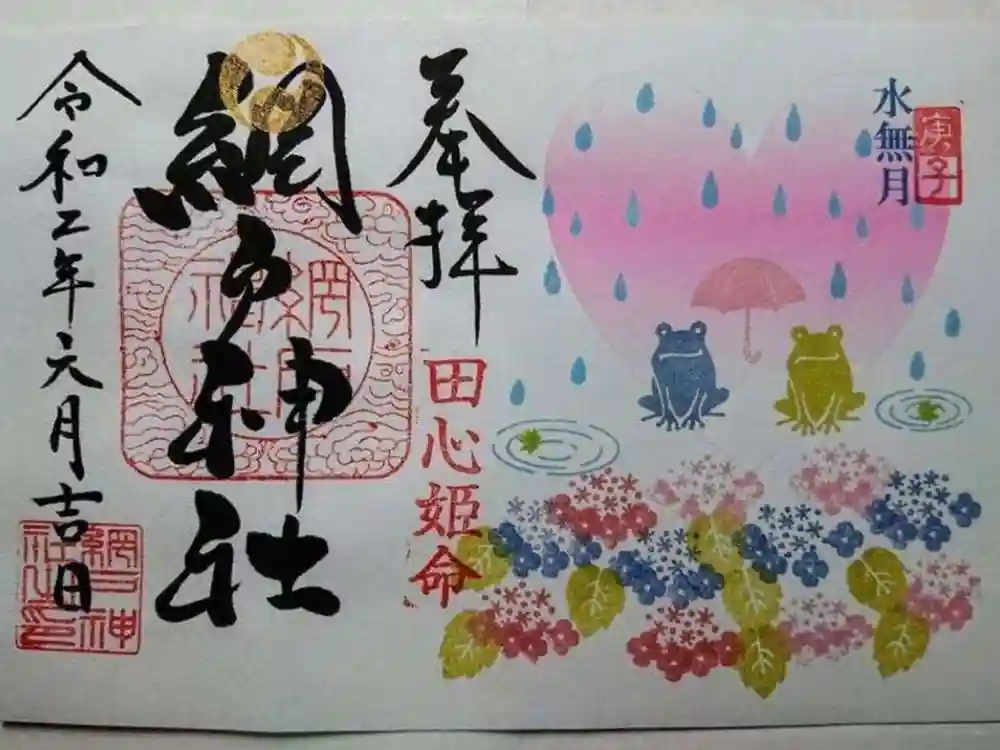 水無月
庚子
奉拝
田心姫命
網戸神社
網戸神社
令和二年六月吉日
網戸神社之印